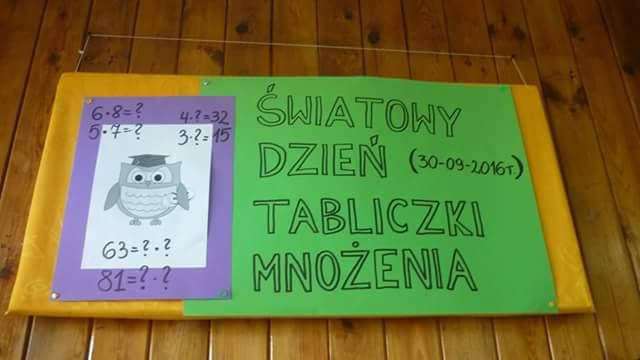 6·8=?
5·7=?
4·?=32
3·?=15
63=?·?
81=?·?
ŚWIATOWY
DZIEŃ (30-09-2016r.)
TABLICZKI
MNOŻENIA